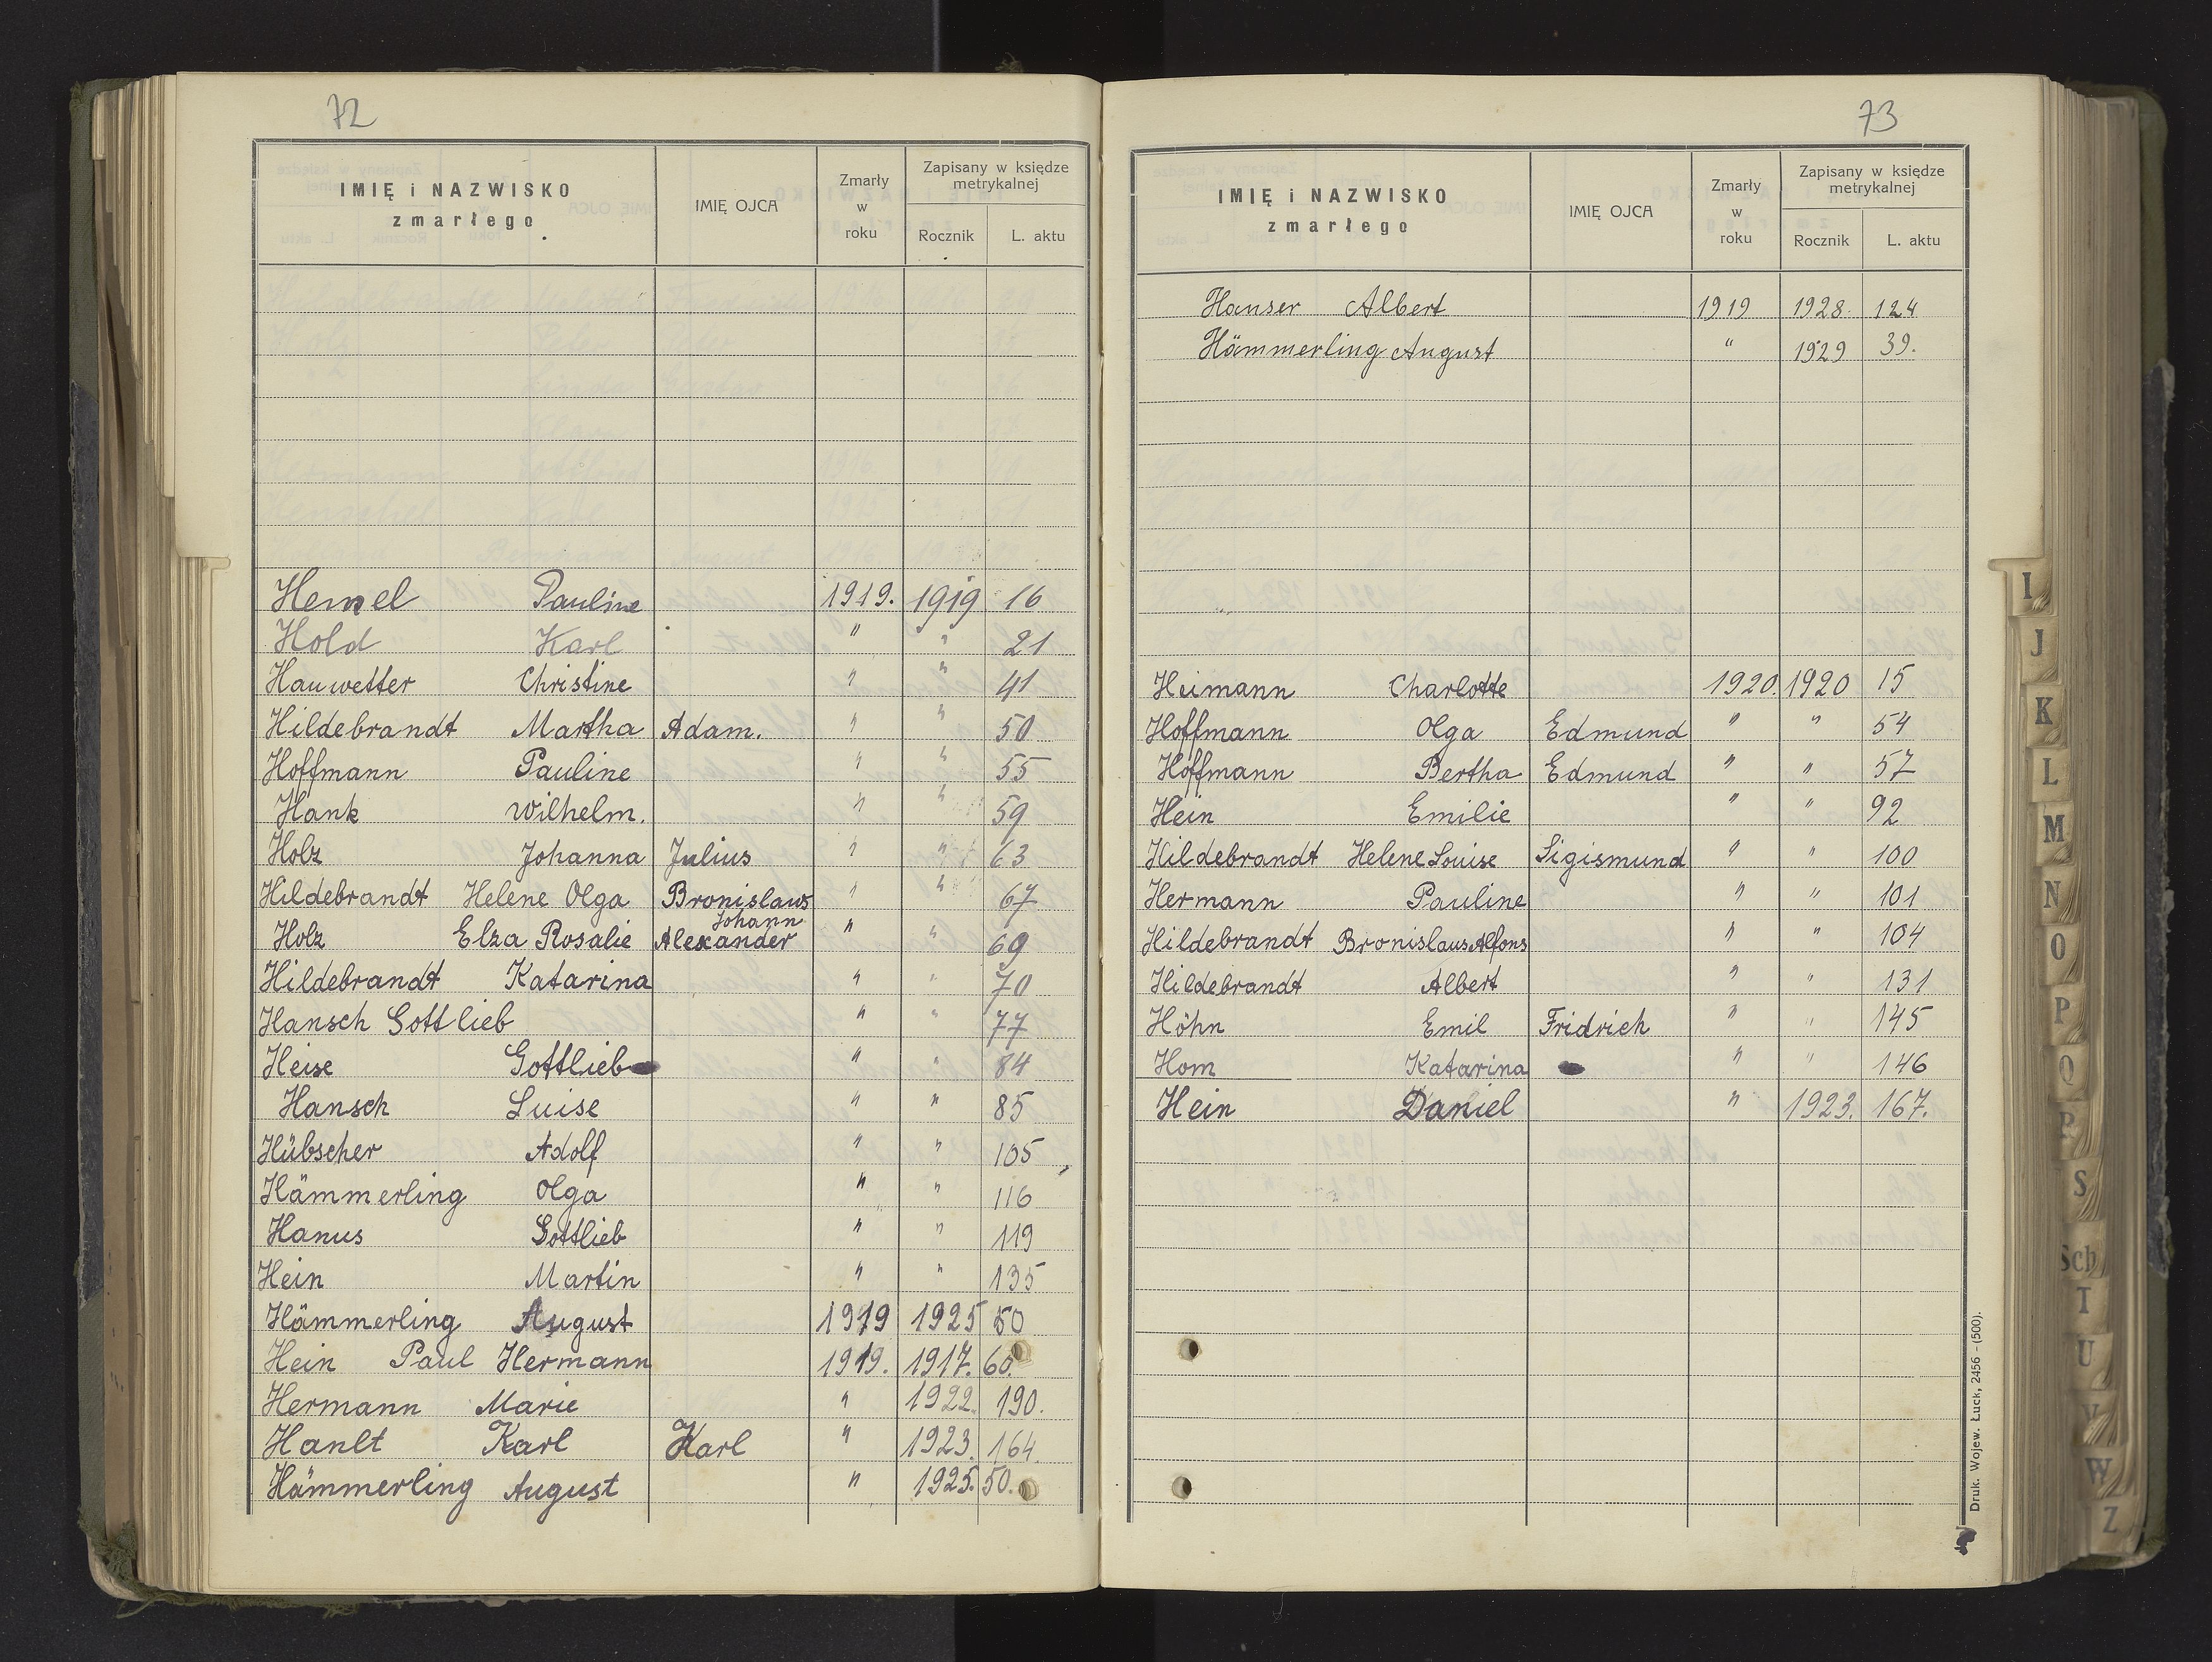 72
IMIĘ i NAZWISKO zmarłego
IMIĘ OJCA
Zmarły w roku
Zapisany w księdze metrykalnej
Rocznik
L. aktu
Hemel Pauline 1919. 1919 16
Hold Karl " " 21
Hauwetter Christine " " 41
Hildebrandt Martha Adam. " " 50
Hoffmann Pauline " " 55
Hank Wilhelm. " " 59
Holz Johanna Julius " " 63
Hildebrandt Helene Olga Bronislaws " " 67
Holz Elza Rosalie Alexander Johann " " 69
Hildebrandt Katarina " " 70
Hansch Gottlieb " " 77
Heise Gottlieb " " 84
Hansch Luise " " 85
Hübscher Adolf " " 105
Hämmerling Olga " " 116
Hanus Gottlieb " " 119
Hein Martin " " 135
Hämmerling August 1919 1925 50
Hein Paul Hermann 1919. 1917. 60.
Hermann Marie " 1922. 190.
Hanlt Karl Karl " 1923. 164.
Hämmerling August " 1925. 50.
73
IMIĘ i NAZWISKO zmarłego
IMIĘ OJCA
Zmarły w roku
Zapisany w księdze metrykalnej
Rocznik
L. aktu
Hanser Albert 1919 1928. 124
Hämmerling August " 1929 39.
Heimann Charlotte 1920. 1920 15
Hoffmann Olga Edmund " " 54
Hoffmann Bertha Edmund " " 57
Hein Emilie " " 92
Hildebrandt Helene Louise Sigismund " " 100
Hermann Pauline " " 101
Hildebrandt Bronislaus Alfons " " 104
Hildebrandt Albert " " 131
Höhn Emil Fridrich " " 145
Hom Katarina " " 146
Hein Daniel " 1923. 167.
Druk. Wojew. Łuck, 2456 - (500).
I
J
K
L
M
N
O
P
Q
R
S
Sch
T
U
V
W
Z